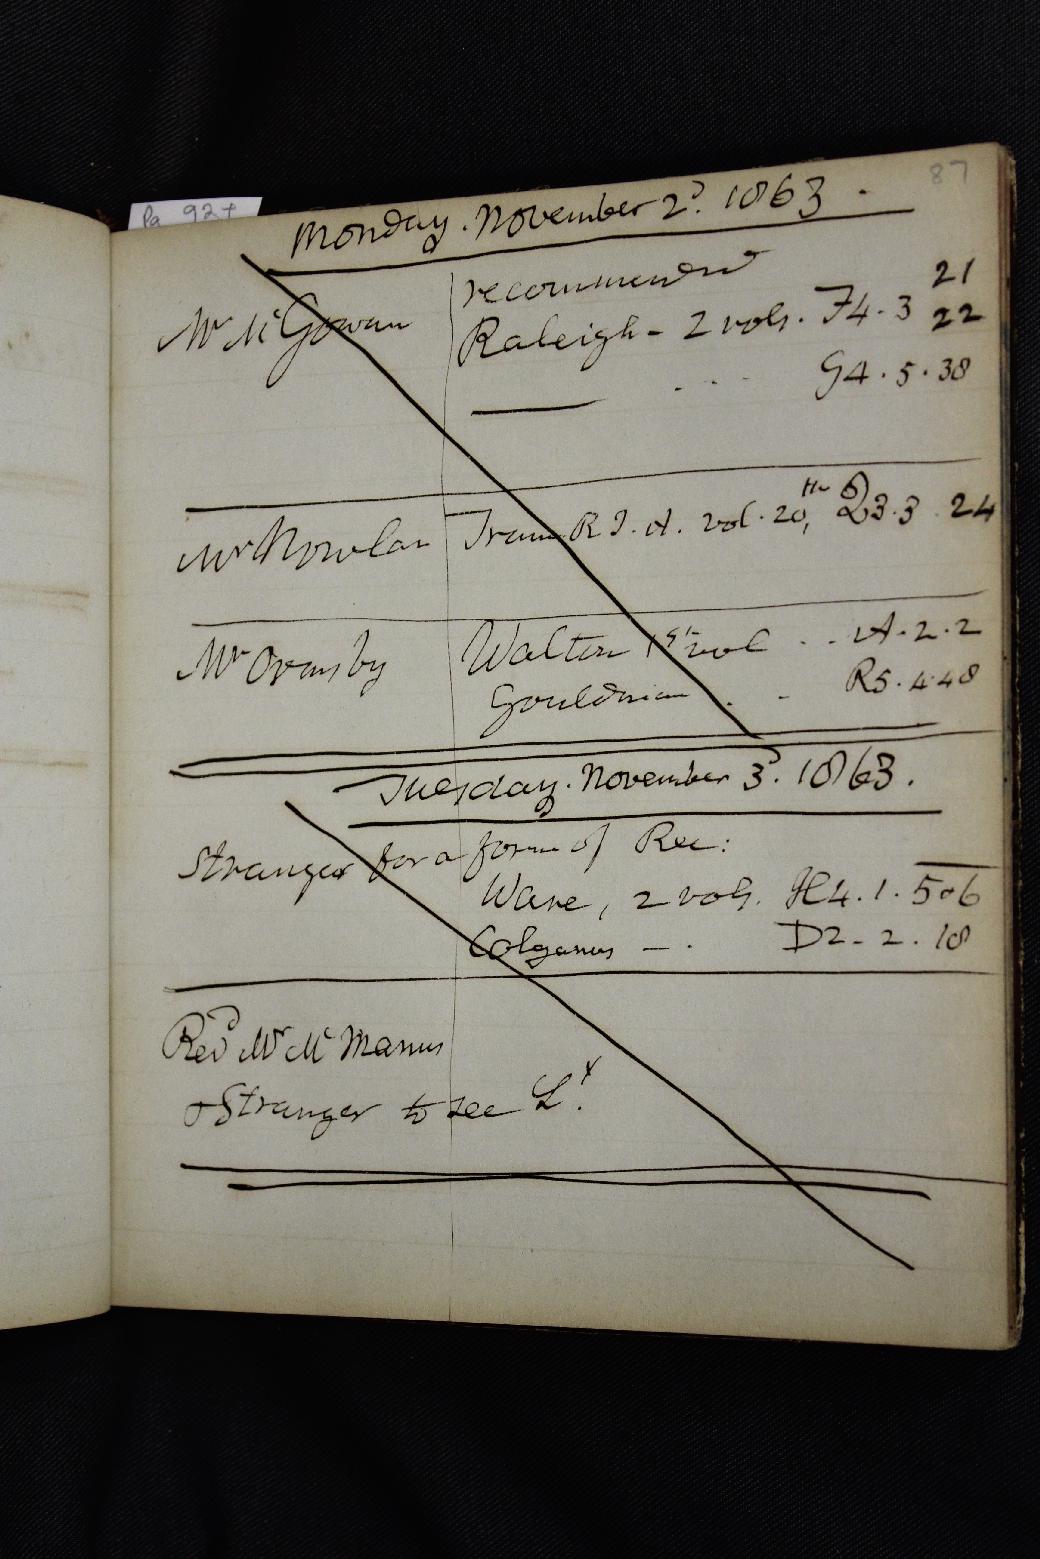 87
Pg 92+
Monday. November 2d. 1863.
recommended
21
Mr McGowan Raleigh - 2 vols. F4.3 22
G4.5.38
Mr Nowlan Trans R.I.A. vol. 20, Q3.3.24
Mr Ormsby Walton 1st vol .. A.2.2
Gouldman . - R5.4.48
Tuesday. November 3d. 1863.
Stranger for a form of Rec:
Ware, 2 vols. H4.1.5&6
Colganus - . D2-2.18
Revd Mr McManus
& Stranger to see Ly.